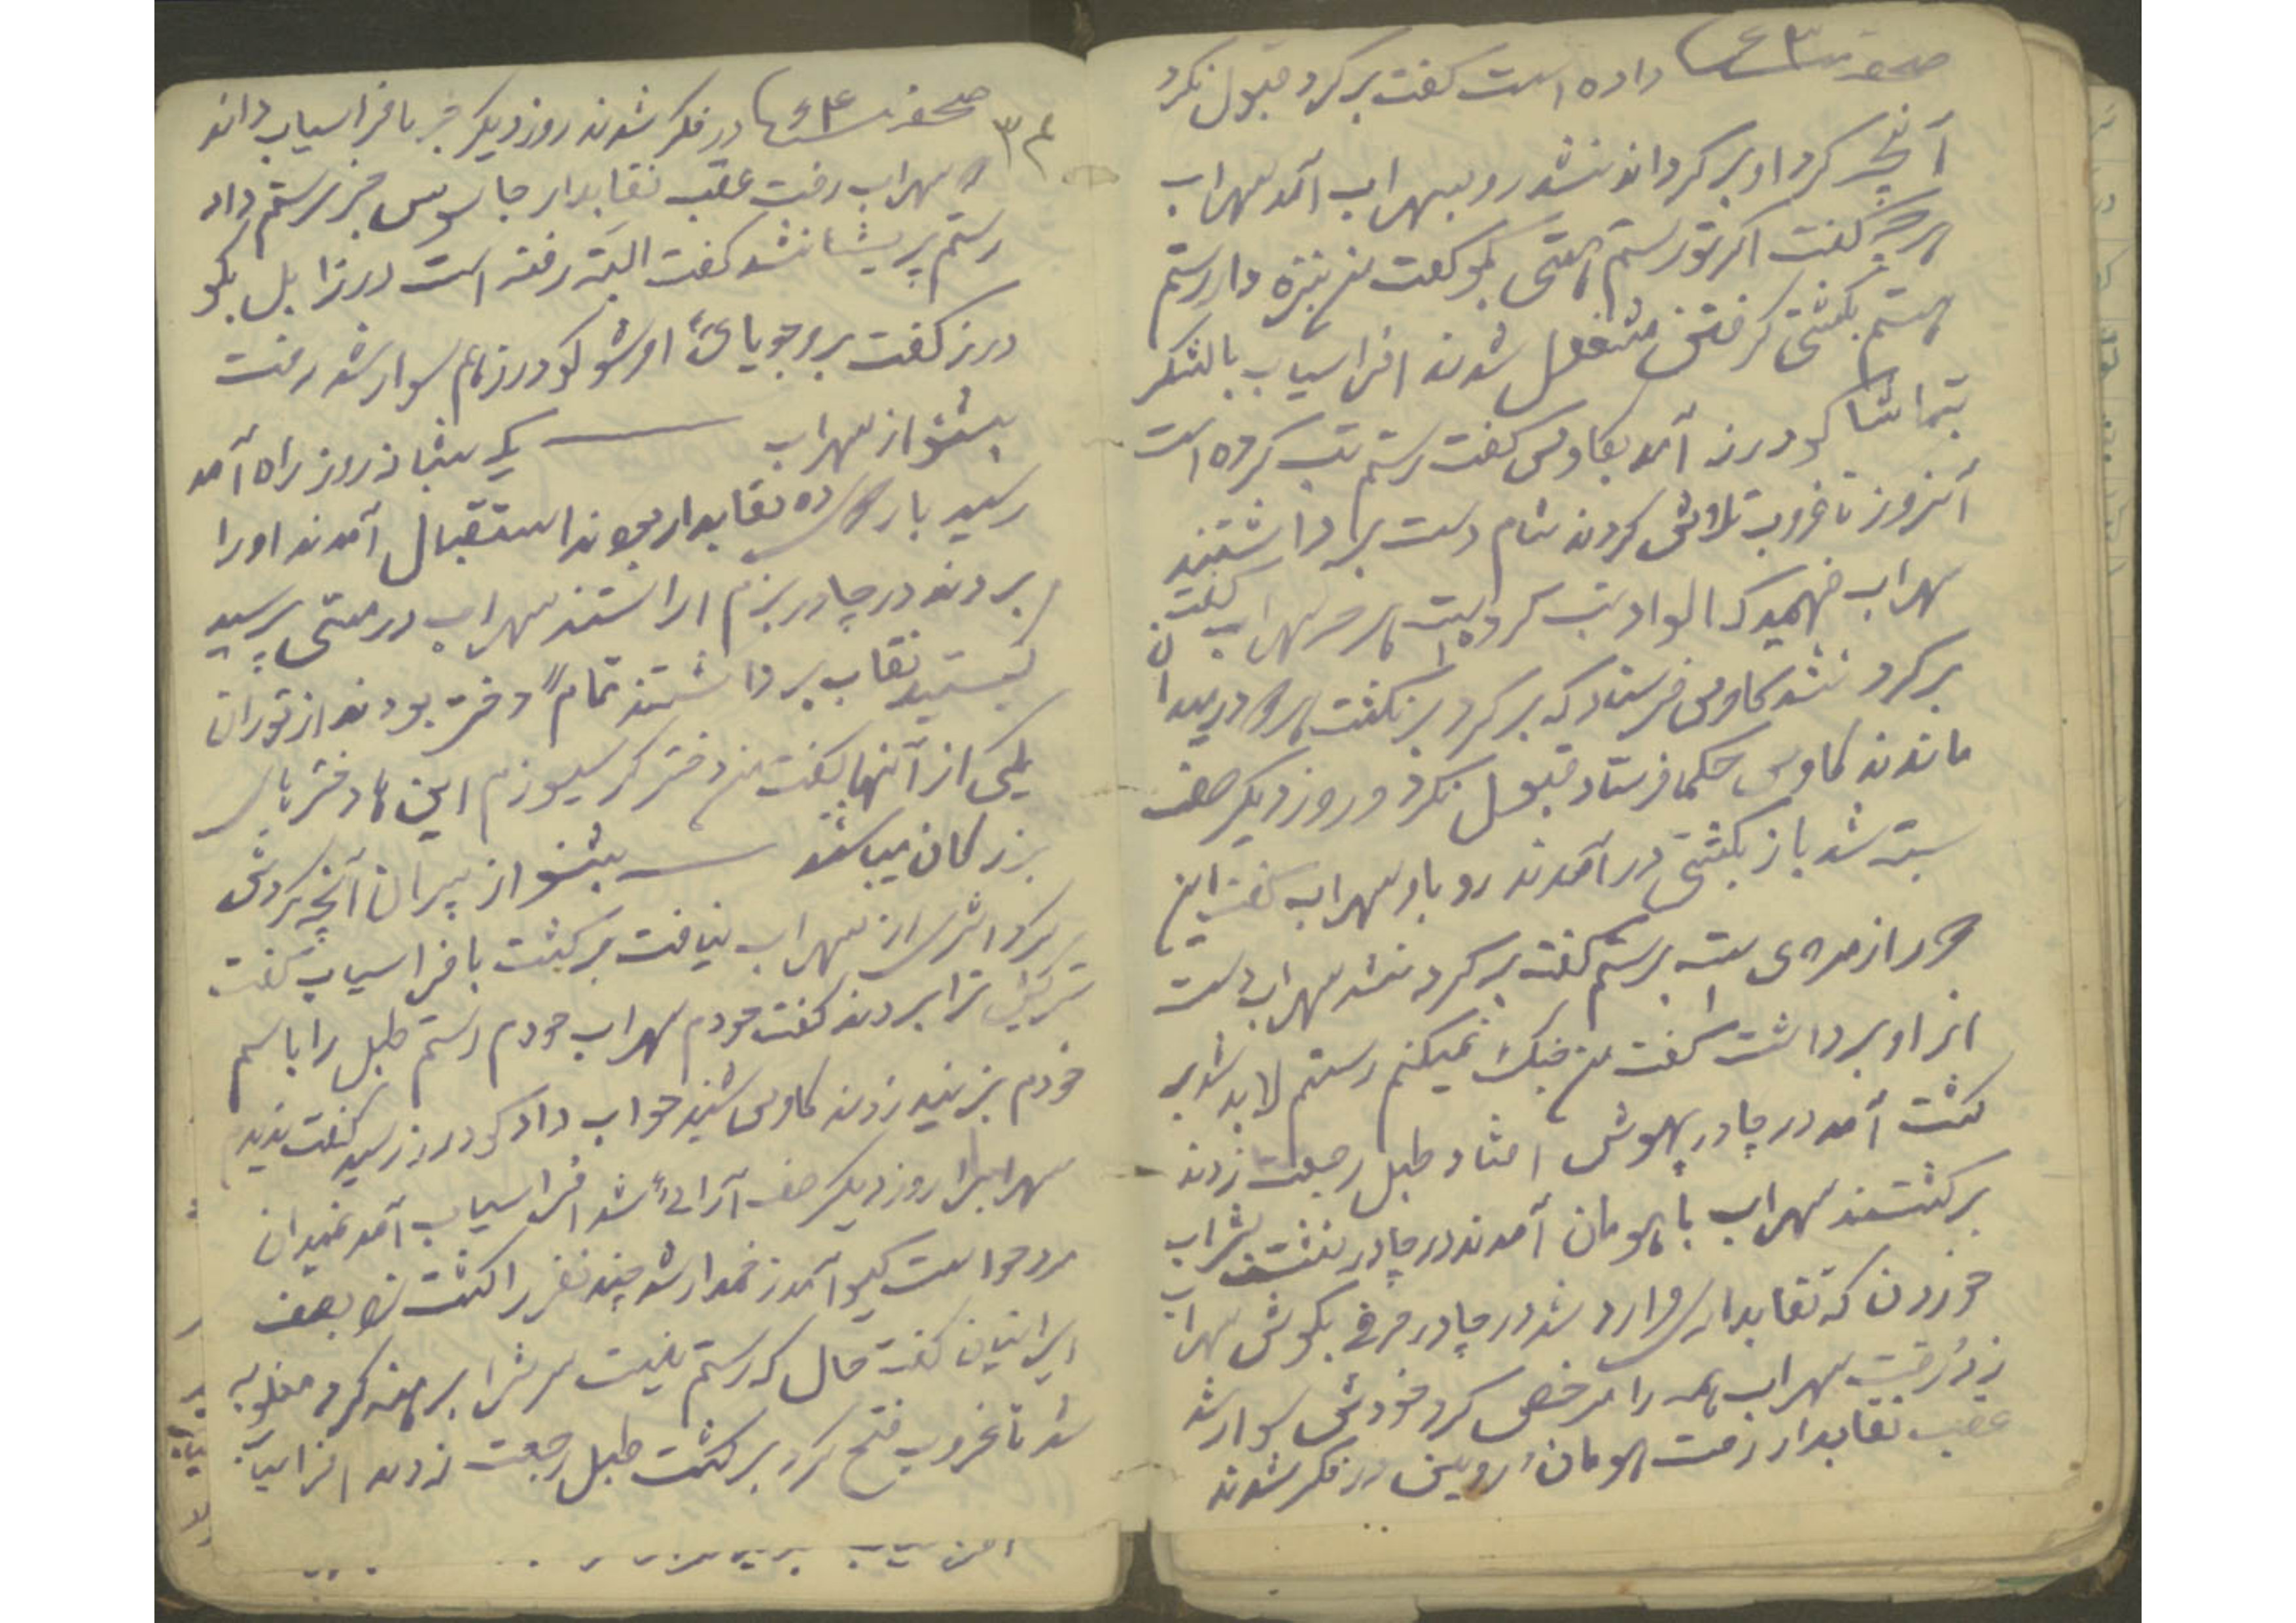 صحفه ۶۳ داده است گفت برگرد قبول نکرد
آنچه کرد او برگرداند نشد رو بسهراب آمد سهراب
گفت اگر تو رستم هستی بگو گفت من نیزه دار رستم
هستم بکشتی گرفتن مشغول شدند افراسیاب بالشکر
بتماشا گودرز آمد بکاوس گفت رستم تب کرده است
آنروز تا غروب تلاش کردند شام دست برداشتند
سهراب فهمید که الواد تب کرده است هرچه سهراب گفت
برگرد نشد کاوس فرستاد که برگرد برنگشت در میدان
ماندند کاوس حکما فرستاد قبول نکرد و روز دیگر صف
بسته شد باز بکشتی در آمدند رو باو سهراب گفت این
دور از مردی است برستم گفت برگرد نشد سهراب دست
از او برداشت گفت من جنگ نمیکنم رستم لابد شد بر
گشت آمد در چادر بیهوش افتاد طبل رجعت زدند
برگشتند سهراب با هومان آمدند در چادر نشست بشراب
خوردن که نقابدار وارد شد در چادر حرفی بگوش سهراب
زد و رفت سهراب همه را مرخص کرد خودش سوار شد
عقب نقابدار رفت هومان و روین در فکر شدند
۳۴
صحفه ۶۴ در فکر شدند روز دیگر خبر بافراسیاب دادند
سهراب رفت عقب نقابدار جاسوس خبر برستم داد
رستم پریشان شد گفت البته رفته است در زابل بگو
درز گفت برو جویای او شو گودرز هم سوار شد رفت
بشنو از سهراب یک شبانه روز راه آمد
رسید ده نقابدار بودند استقبال آمدند او را
بردند در چادر بزم اراستند سهراب در مستی پرسید
کیستید نقاب برداشتند تماماً دختر بودند از توران
یکی از آنها گفت من دختر گرسیوزم این ها دخترهای
بزرگان میباشند بشنو از پیران آنچه گردش
کرد اثری از سهراب نیافت برگشت بافراسیاب گفت
ترا بردند گفت خودم سهراب خودم رستم طبل را باسم
خودم بزنید زدند کاوس شنید جواب داد گودرز رسید گفت ندید
سهراب را روز دیگر صف آرائی شد افراسیاب آمد بمیدان
مرد خواست گیو آمد زخمدار شد چند نفر را کشت بصف
ایرانیان گفت حال که رستم نیست سرش را برهنه کرد مغلوبه
شد تا غروب فتح کرد برگشت طبل رجعت زدند افراسیاب